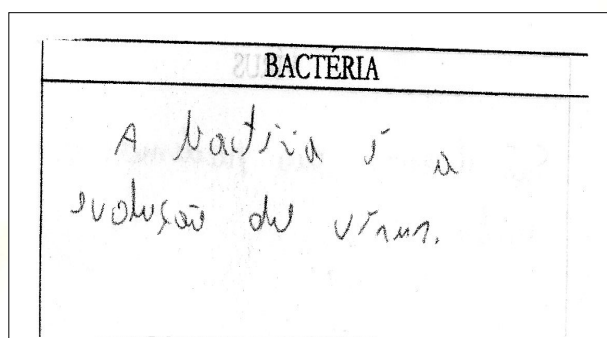 BACTÉRIA
A bactéria é a
evolução del vírus.